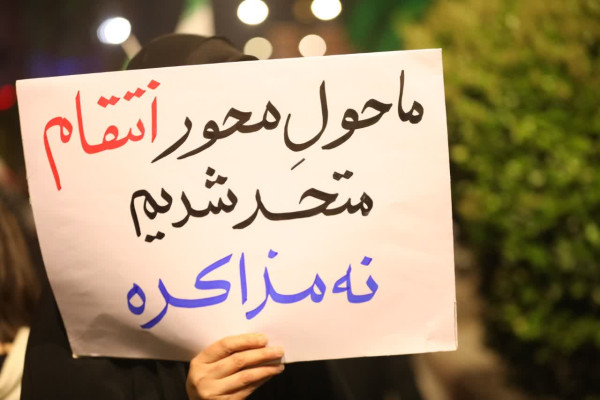 ما حولِ محور انتقام
متحد شدیم
نه مذاکره